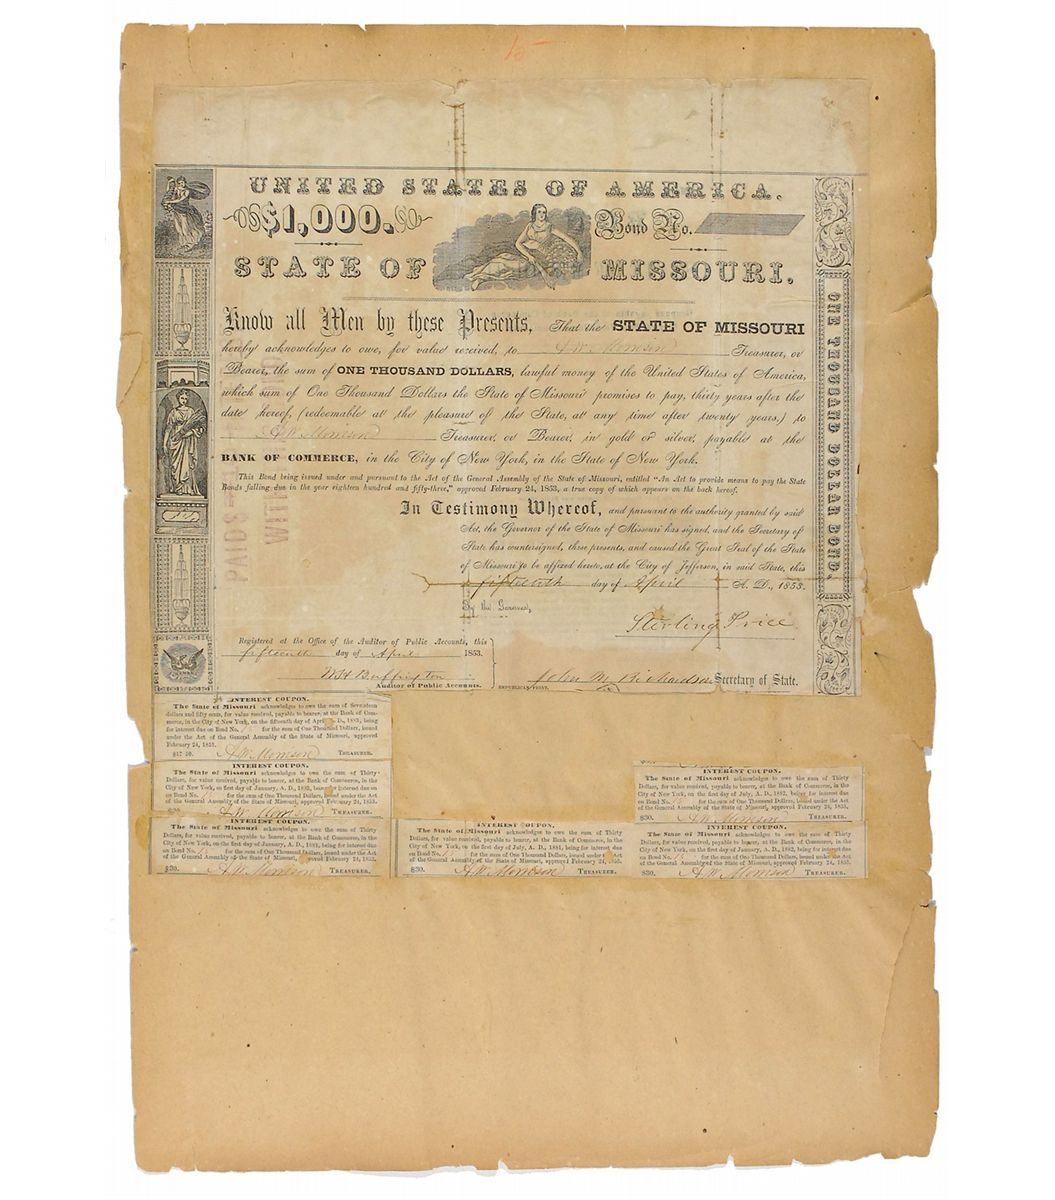 15
UNITED STATES OF AMERICA.
$1,000.
Bond No.
STATE OF MISSOURI.
Know all Men by these Presents, That the STATE OF MISSOURI
hereby acknowledges to owe, for value received, to A W Morrison Treasurer, or
Bearer, the sum of ONE THOUSAND DOLLARS, lawful money of the United States of America,
which sum of One Thousand Dollars the State of Missouri promises to pay, thirty years after the
date hereof, (redeemable at the pleasure of the State, at any time after twenty years,) to
A W Morrison Treasurer, or Bearer, in gold or silver, payable at the
BANK OF COMMERCE, in the City of New York, in the State of New York.
This Bond being issued under and pursuant to the Act of the General Assembly of the State of Missouri, entitled "An Act to provide means to pay the State
Bonds falling due in the year eighteen hundred and fifty-three," approved February 24, 1853, a true copy of which appears on the back hereof.
In Testimony Whereof, and pursuant to the authority granted by said
Act, the Governor of the State of Missouri has signed, and the Secretary of
State has countersigned, these presents, and caused the Great Seal of the State
of Missouri to be affixed hereto, at the City of Jefferson, in said State, this
fifteenth day of April A. D., 1853.
By the Governor,
Sterling Price
Registered at the Office of the Auditor of Public Accounts, this
fifteenth day of April 1853.
Wm H Buffington
Auditor of Public Accounts.
REPUBLICAN PRINT.
John M Richardson Secretary of State.
ONE THOUSAND DOLLAR BOND.
PAID
INTEREST COUPON.
The State of Missouri acknowledges to owe the sum of Seventeen
dollars and fifty cents, for value received, payable to bearer, at the Bank of Com-
merce, in the City of New York, on the fifteenth day of April A. D., 1883, being
for interest due on Bond No. for the sum of One Thousand Dollars, issued
under the Act of the General Assembly of the State of Missouri, approved
February 24, 1853.
$17 50. A W Morrison TREASURER.
INTEREST COUPON.
The State of Missouri acknowledges to owe the sum of Thirty
Dollars, for value received, payable to bearer, at the Bank of Commerce, in the
City of New York, on first day of January, A. D., 1882, being for interest due
on Bond No. 15 for the sum of One Thousand Dollars, issued under the Act
of the General Assembly of the State of Missouri, approved February 24, 1853.
A W Morrison TREASURER.
INTEREST COUPON.
The State of Missouri acknowledges to owe the sum of Thirty
Dollars, for value received, payable to bearer, at the Bank of Commerce, in the
City of New York, on the first day of July, A. D., 1882, being for interest due
on Bond No. 15 for the sum of One Thousand Dollars, issued under the Act
of the General Assembly of the State of Missouri, approved February 24, 1853.
$30. A W Morrison TREASURER.
INTEREST COUPON.
The State of Missouri acknowledges to owe the sum of Thirty
Dollars, for value received, payable to bearer, at the Bank of Commerce, in the
City of New York, on the first day of January, A. D., 1881, being for interest due
on Bond No. 15 for the sum of One Thousand Dollars, issued under the Act
of the General Assembly of the State of Missouri, approved February 24, 1853.
$30. A W Morrison TREASURER.
INTEREST COUPON.
The State of Missouri acknowledges to owe the sum of Thirty
Dollars, for value received, payable to bearer, at the Bank of Commerce, in the
City of New York, on the first day of July, A. D., 1881, being for interest due
on Bond No. 15 for the sum of One Thousand Dollars, issued under the Act
of the General Assembly of the State of Missouri, approved February 24, 1853.
$30. A W Morrison TREASURER.
INTEREST COUPON.
The State of Missouri acknowledges to owe the sum of Thirty
Dollars, for value received, payable to bearer, at the Bank of Commerce, in the
City of New York, on the first day of January, A. D., 1882, being for interest due
on Bond No. 15 for the sum of One Thousand Dollars, issued under the Act
of the General Assembly of the State of Missouri, approved February 24, 1853.
$30. A W Morrison TREASURER.